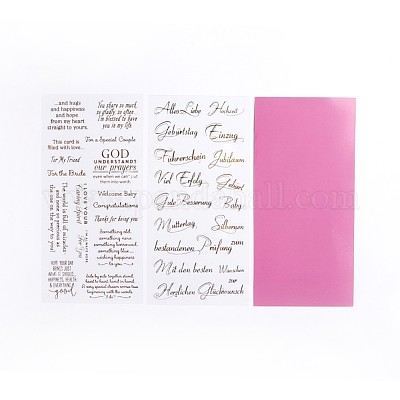 ...and hugs
and happiness
and hope
from my heart
straight to yours.
This card is
filled with love...
For My Friend
For the Bride
You share so much,
so gladly, so often
I'm blessed to have
you in my life
For a Special Couple
GOD
UNDERSTANDS
our prayers
even when we can't
them into words
Welcome Baby
Congratulations
Thanks for being you
Something old,
something new
something borrowed,
something blue...
wishing happiness
to you
HOPE YOUR DAY
BRINGS JUST
WHAT IT SHOULD,
HAPPINESS, HEALTH
& EVERYTHING
good
Side by side, together stand,
heart to heart, hand in hand.
A very special dream comes true
beginning with the words,
"I do"!
Alles Liebe Hochzeit
Geburtstag Einzug
Führerschein Jubiläum
Viel Erfolg Geburt
Gute Besserung Baby
Muttertag Silbernen
bestandenen Prüfung zum
Mit den besten Wünschen
zur
Herzlichen Glückwunsch